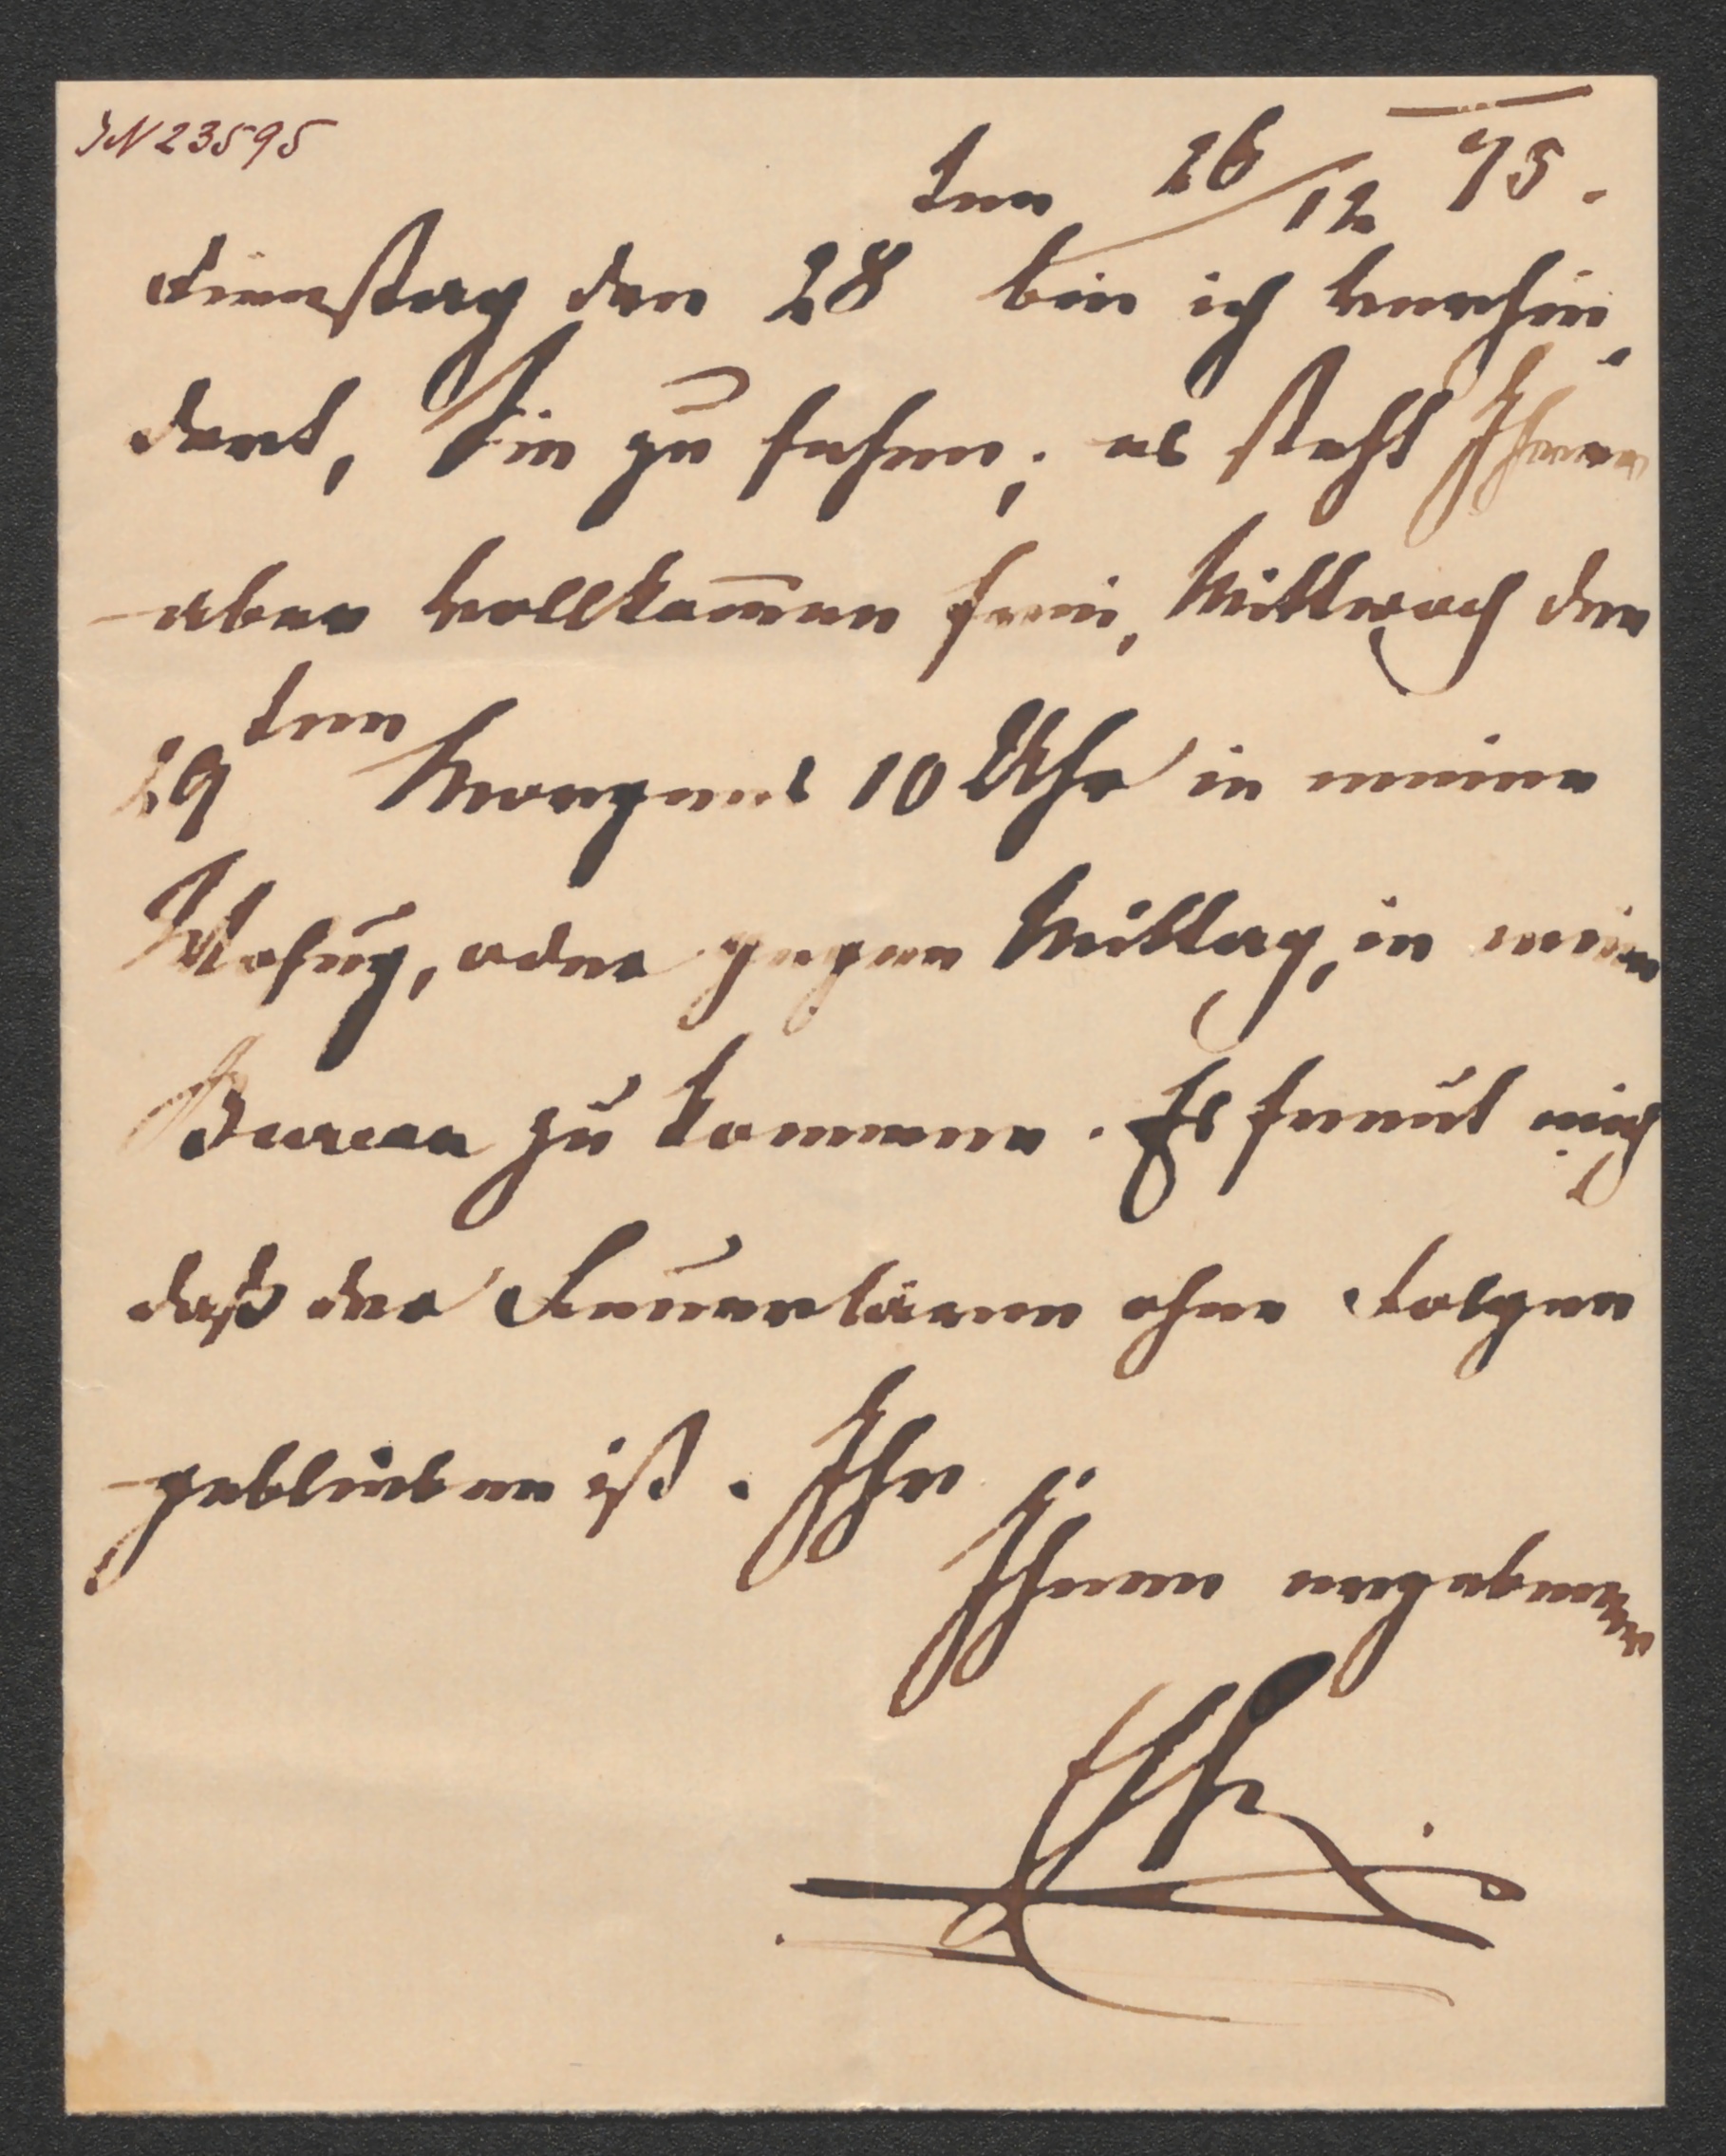 IN 23595
26/12 75.
Dienstag den 28ten bin ich verhin
dert, Sie zu sehen; es steht Ihnen
aber vollkom̄en frei, Mittwoch den
29ten Morgens 10 Uhr in meine
Wohnug, oder gegen Mittag, in mein
Bureau zu kommen. Es freut mich
daß der Feuerlärm ohne Folgen
geblieben ist. Ihr
Ihnen ergebener